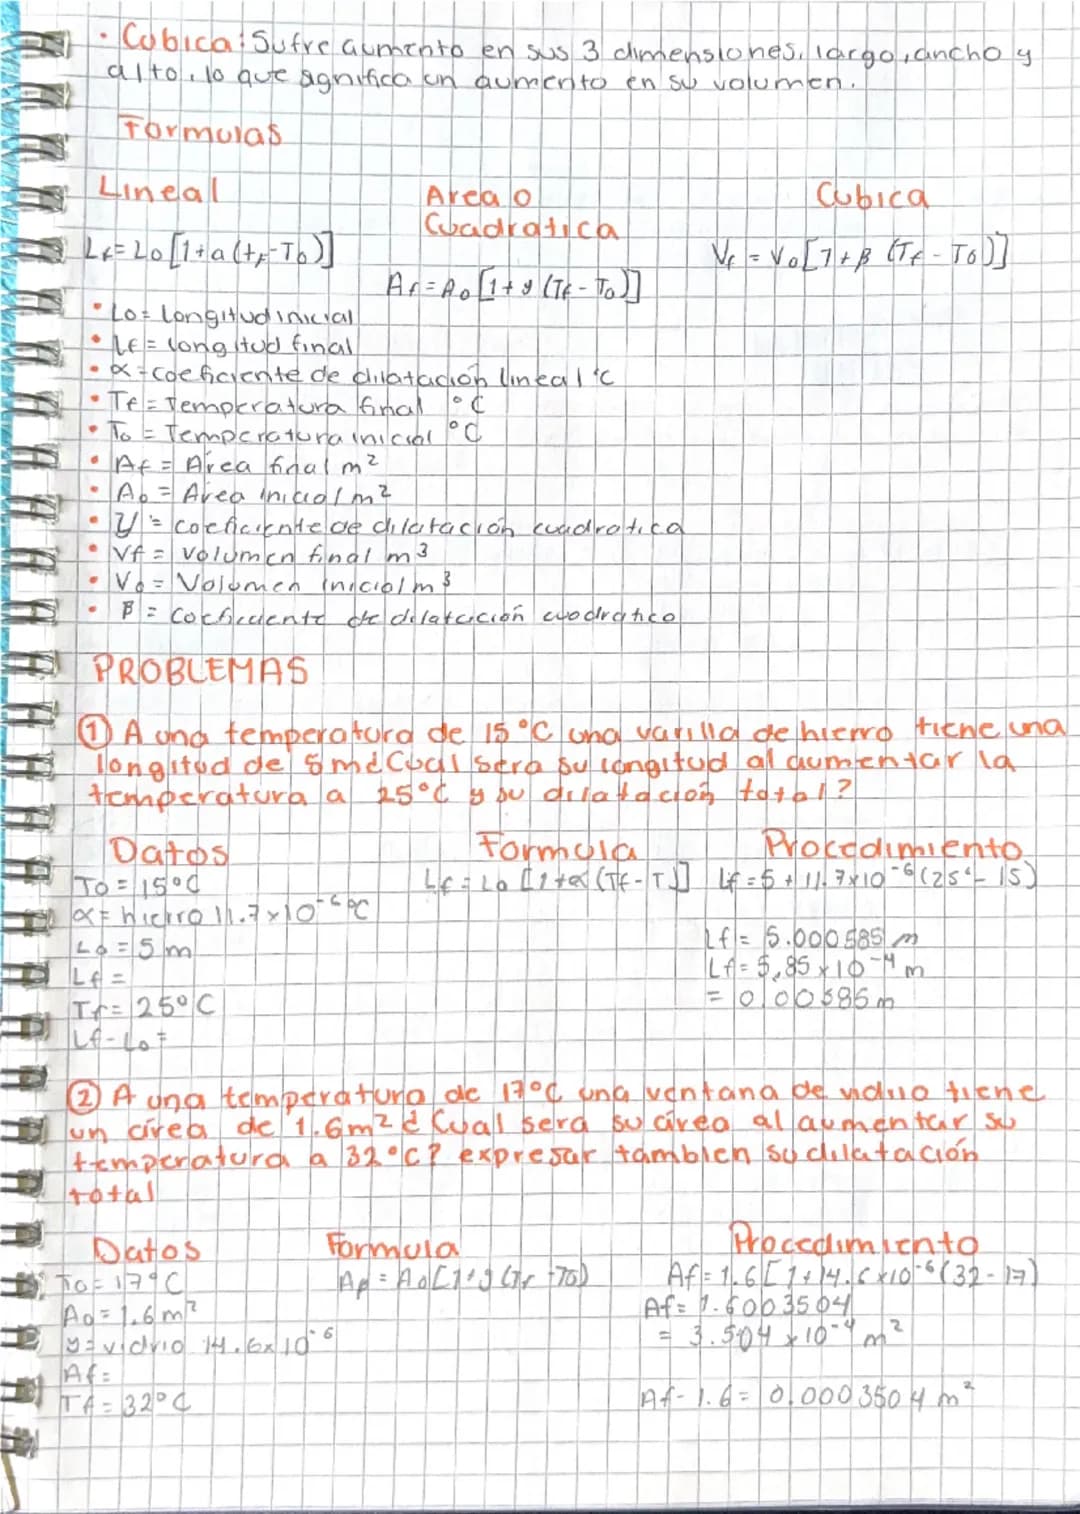 • Cubica: Sufre aumento en sus 3 dimensiones, largo, ancho y
alto, lo que significa un aumento en su volumen.
Formulas
Lineal
Area o
Cuadratica
Cubica
Lf = Lo [1+a (tf-To)]
Af = Ao [1+y (Tf - To)]
Vf = Vo [1+β (Tf - To)]
• Lo = Longitud inicial
• Lf = longitud final
• α = coeficiente de dilatación lineal °C
• Tf = Temperatura final °C
• To = Temperatura inicial °C
• Af = Area final m²
• Ao = Area inicial m²
• Y = coeficiente de dilatación cuadratica
• Vf = volumen final m³
• Vo = Volumen inicial m³
• β = coeficiente de dilatación cuadratico
PROBLEMAS
① A una temperatura de 15°C una varilla de hierro tiene una
longitud de 5m ¿Cual sera su longitud al aumentar la
temperatura a 25°C y su dilatación total?
Datos
Formula
Procedimiento
To = 15°C
Lf = Lo [1+α (Tf-T)]
Lf = 5 + 11.7x10⁻⁶ (25°- 15)
α = hierro 11.7x10⁻⁶ °C
Lo = 5 m
Lf = 5.000585 m
Lf =
Lf = 5,85 x 10⁻⁴ m
Tf = 25°C
= 0.00585 m
Lf - Lo =
② A una temperatura de 17°C una ventana de vidrio tiene
un area de 1.6m² ¿Cual sera su area al aumentar su
temperatura a 32°C? expresar tambien su dilatación
total
Datos
Formula
Procedimiento
To = 17°C
Af = Ao [1+y (Tf - To)
Af = 1.6 [1+14.6 x10⁻⁶ (32-17)
Ao = 1.6 m²
Af = 1.6003504
y = vidrio 14.6x10⁻⁶
= 3.504 x 10⁻⁴ m²
Af =
Tf = 32°C
Af - 1.6 = 0.0003504 m²